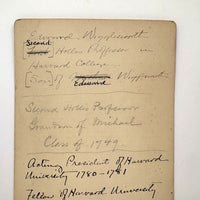 Edward Wigglesworth
Second
Hollis Professor in
Harvard College.
[Son] of Edward Wigglesworth
Second Hollis Professor
Grandson of Michael
Class of 1749
Acting President of Harvard
University 1780-1781
Fellow of Harvard University